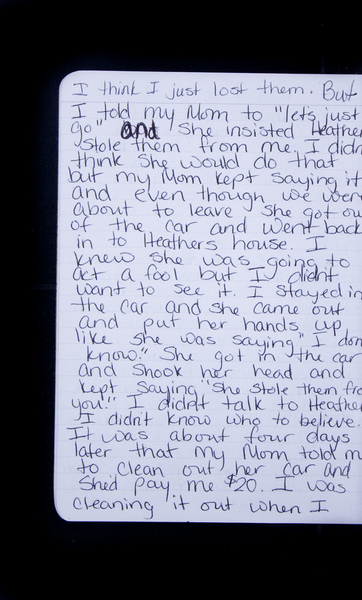 I think I just lost them. But
I told my Mom to "let's just
go" and she insisted Heather
stole them from me. I didn
think she would do that
but my Mom kept saying it
and even though we were
about to leave she got ou
of the car and went back
in to Heathers house. I
knew she was going to
act a fool but I didnt
want to see it. I stayed in
the car and she came out
and put her hands up
like she was saying "I don
know." She got in the car
and shook her head and
kept saying "she stole them fro
you!" I didn't talk to Heather
I didn't know who to believe.
It was about four days
later that my Mom told m
to clean out her car and
Shed pay me $20. I was
cleaning it out when I